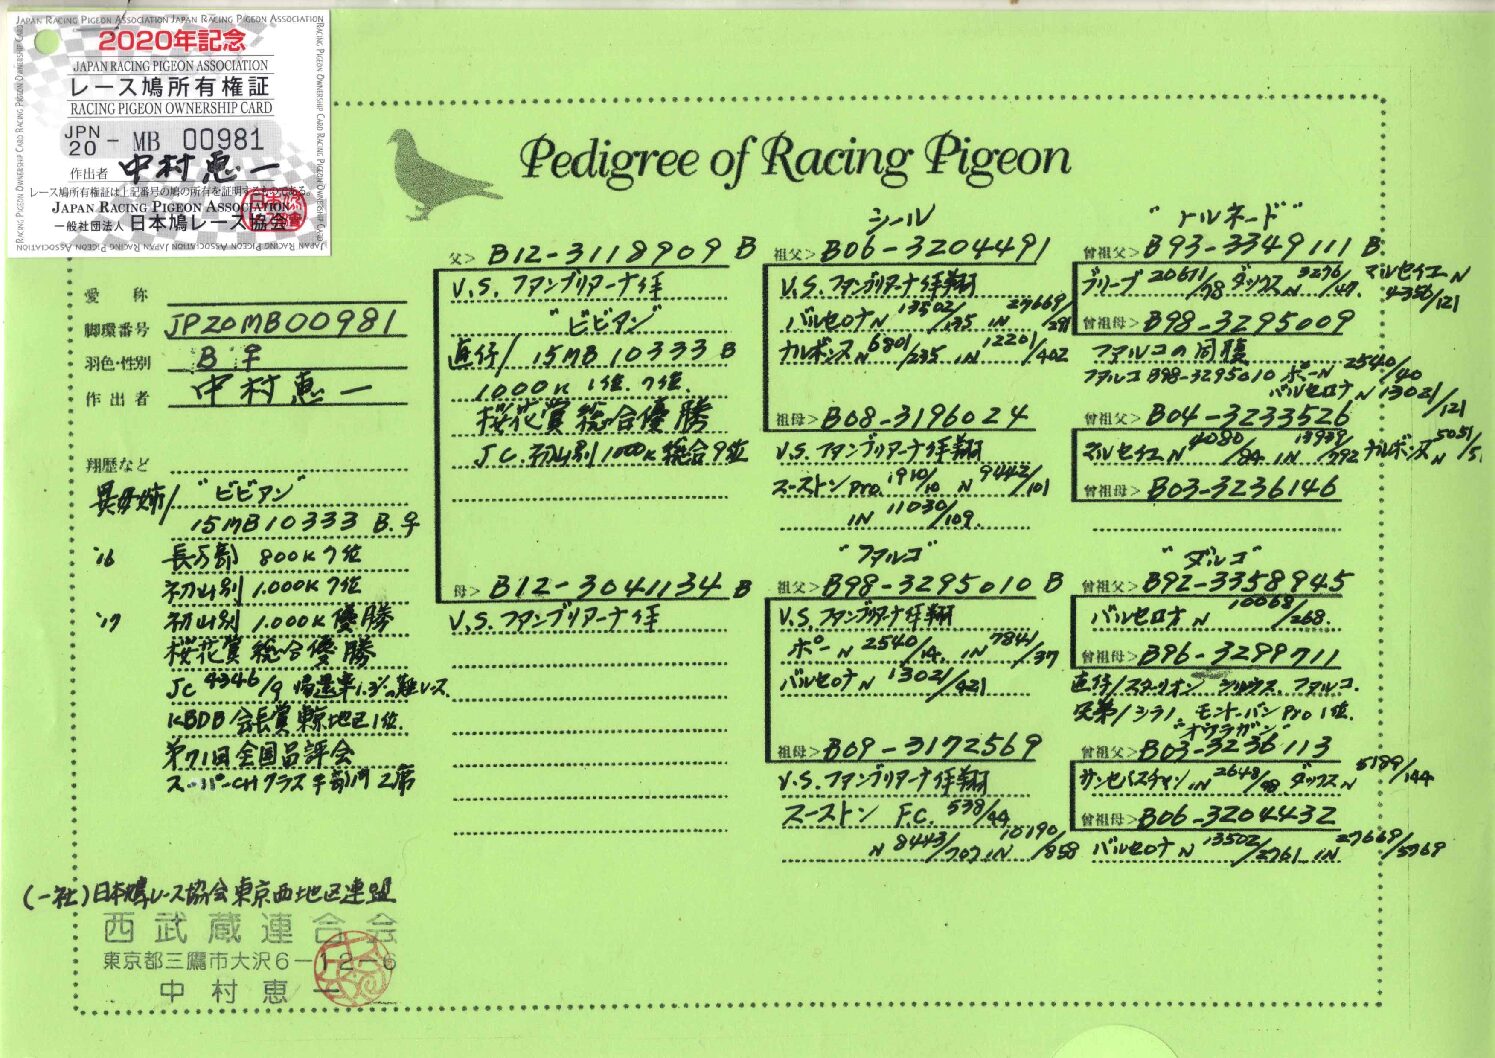 JAPAN RACING PIGEON ASSOCIATION JAPAN RACING PIGEON ASSOCIATION
2020年記念
JAPAN RACING PIGEON ASSOCIATION
レース鳩所有権証
RACING PIGEON OWNERSHIP CARD
JPN 20 - MB 00981
作出者 中村恵一
レース鳩所有権証は上記番号の鳩の所有を証明するものである。
JAPAN RACING PIGEON ASSOCIATION
一般社団法人 日本鳩レース協会
Pedigree of Racing Pigeon
愛称
脚環番号 JP20MB00981
羽色・性別 B ♀
作出者 中村恵一
翔歴など
異母姉/"ビビアン"
15MB10333 B.♀
'16 長万部 800K 7位
初山別 1.000K 7位
'17 初山別 1.000K 優勝
桜花賞 総合優勝
JC 4346/9 帰還率1.3%の難レース
KBDB 会長賞 東京地区1位.
第71回全国品評会
スーパーCHクラス♀部門 2席
(一社)日本鳩レース協会東京西地区連盟
西武蔵連合会
東京都三鷹市大沢6-12-6
中村恵一
父> B12-3118909 B
V.S. ファンブリアーナ作
"ビビアン"
直仔/15MB10333 B
1000K 1位. 7位.
桜花賞 総合優勝
J C. 初山別1000K 総合9位
母> B12-3041134 B
V.S. ファンブリアーナ作
シール
祖父> B06-3204491
V.S. ファンブリアーナ作翔
バルセロナ N 13502/135 IN 27669/291
ナルボンヌ N 6801/235 IN 12201/402
祖母> B08-3196024
V.S. ファンブリアーナ作翔
スーストン Pro. 1910/10 N 9442/101
IN 11030/109.
"ファルコ"
祖父> B98-3295010 B
V.S. ファンブリアーナ作翔
ポー N 2540/14. IN 7841/37
バルセロナ N 13021/421
祖母> B09-3172569
V.S. ファンブリアーナ作翔
スーストン F.C. 538/44
N 8443/707 IN 10190/858
"トルネード"
曾祖父> B93-3349111 B
ブリーブ 20671/78 ダックス N 3276/47. マルセイユ N 4356/121
曾祖母> B98-3295009
ファルコの同腹
ファルコ B98-3295010 ポー N 2540/40
バルセロナ N 13021/121
曾祖父> B04-3233526
マルセイユ N 4080/84 IN 13939/292 ナルボンヌ N 5051/5
曾祖母> B03-3236146
"ダルコ"
曾祖父> B92-3358945
バルセロナ N 10068/268.
曾祖母> B96-3299711
直仔/スターリオン シリウス. ファルコ.
兄弟/シラノ モントーバン Pro 1位.
"オウラガン"
曾祖父> B03-3236113
サンセバスチャン IN 2648/98 ダックス N 5189/144
曾祖母> B06-3204432
バルセロナ N 13502/2761 IN 27669/5769